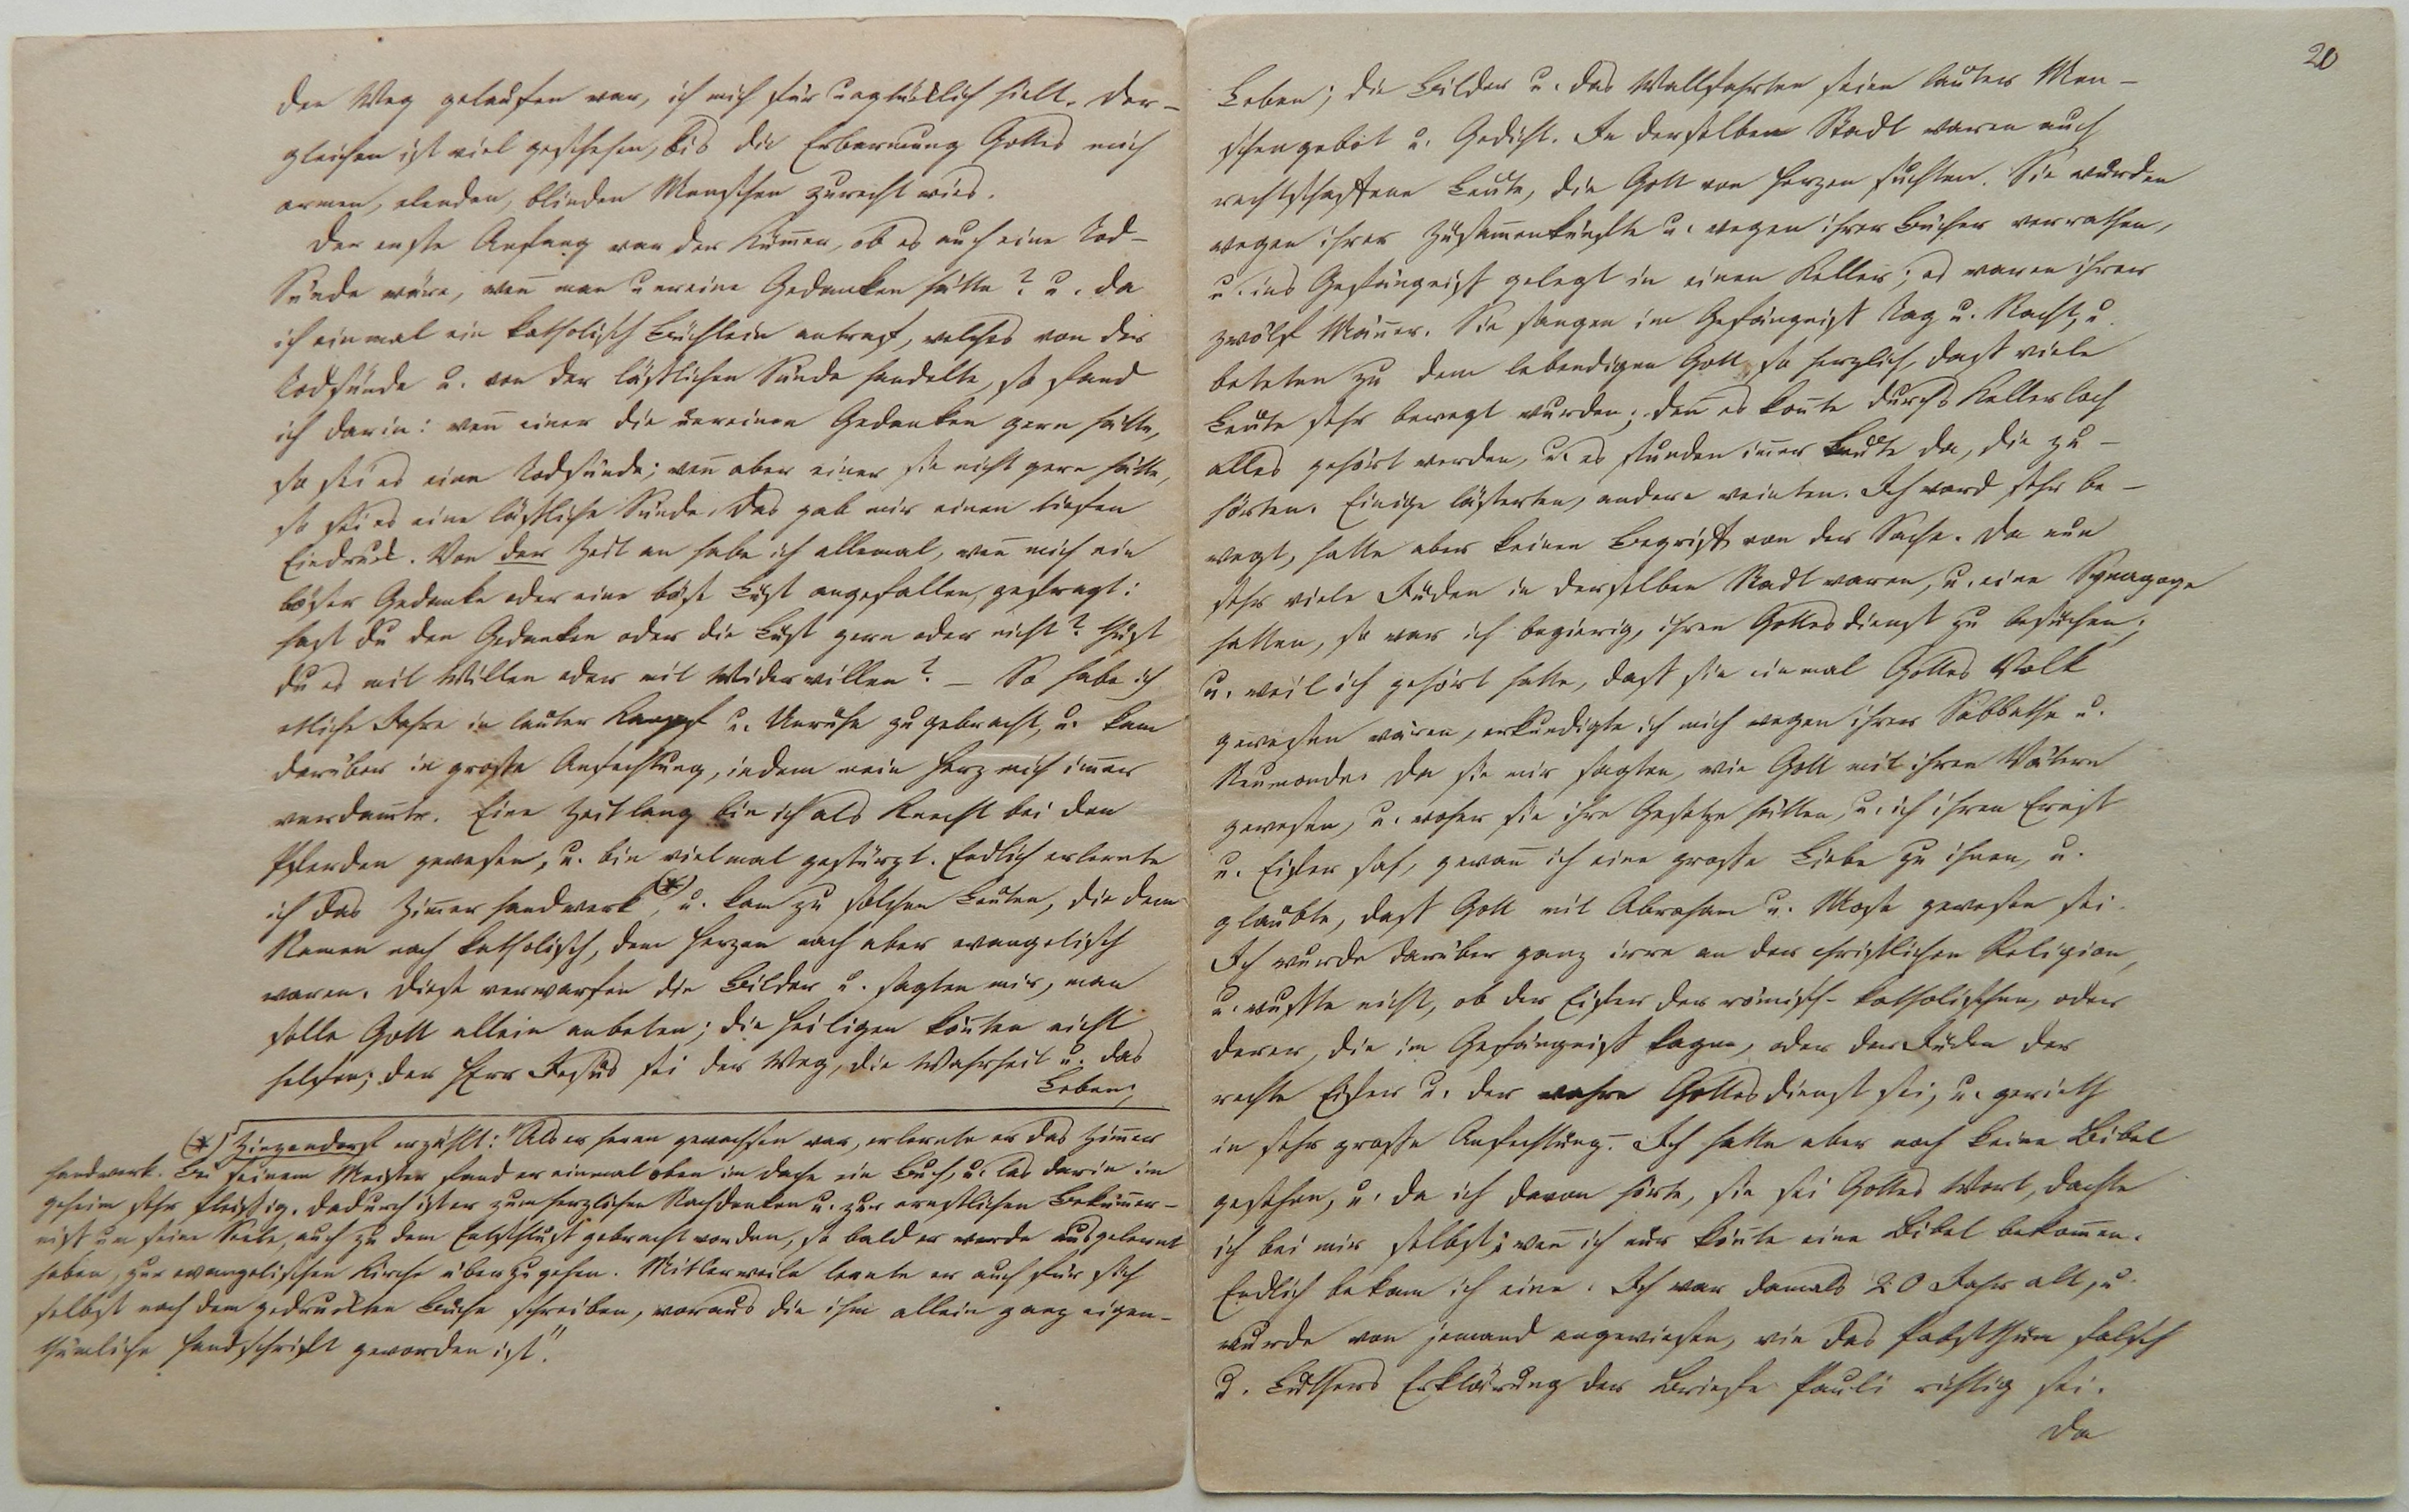 den Weg gelaufen war, ich mich für unglücklich hielt. Der-
gleichen ist viel geschehen, bis die Erbarmung Gottes mich
armen, elenden, blinden Menschen zurecht wies.
Der erste Anfang war der Kum̄er, ob es auch eine Tod-
Sünde wäre, wen̄ man unreine Gedanken hätte? u. da
ich einmal ein katholisch Büchlein antraf, welches von der
Todsünde u. von der läßlichen Sünde handelte, so fand
ich darin: wen̄ einer die unreinen Gedanken gern hätte,
so sei es eine Todsünde; wen̄ aber einer sie nicht gern hätte,
so sei es eine läßliche Sünde. Das gab mir einen tiefen
Eindruck. Von der Zeit an habe ich allemal, wen̄ mich ein
böser Gedanke oder eine böse Lust angefallen, gefragt:
hast du den Gedanken oder die Lust gern oder nicht? Thust
du es mit Willen oder mit Widerwillen? – So habe ich
etliche Jahre in lauter Kampf u. Unruhe zugebracht, u. kam
darüber in große Anfechtung, indem mein Herz mich im̄er
verdam̄te. Eine Zeitlang bin ich als Knecht bei den
Pferden gewesen, u. bin vielmal gestürzt. Endlich erlernte
ich das Zim̄erhandwerk (*), u. kam zu solchen Leuten, die dem
Namen nach katholisch, dem Herzen nach aber evangelisch
waren. Diese verwarfen die Bilder u. sagten mir, man
solle Gott allein anbeten; die Heiligen kön̄ten nicht
helfen; der HErr Jesus sei der Weg, die Wahrheit u. das
Leben;
(*) Zinzendorf erzählt: "Als er heran gewachsen war, erlernte er das Zim̄er
handwerk. Bei seinem Meister fand er einmal oben im Dache ein Buch, u. las darin in
geheim sehr fleißig. Dadurch ist er zum herzlichen Nachdenken u. zur ernstlichen Beküm̄er-
niß um seine Seele, auch zu dem Entschluß gebracht worden, so bald er werde ausgelernt
haben, zur evangelischen Kirche überzugehen. Mitlerweile lernte er auch für sich
selbst nach dem gedruckten Buche schreiben, woraus die ihm allein ganz eigen-
thümliche Handschrift geworden ist".
20
Leben; die Bilder u. das Wallfahrten seien lauter Men-
schengebot u. Gedicht. In derselben Stadt waren auch
rechtschaffene Leute, die Gott von Herzen suchten. Sie wurden
wegen ihrer Zusam̄enkünfte u. wegen ihrer Bücher verrathen,
u. ins Gefängniß gelegt in einen Keller; es waren ihrer
zwölf Män̄er. Sie sangen im Gefängniß Tag u. Nacht, u.
beteten zu dem lebendigen Gott so herzlich, daß viele
Leute sehr bewegt wurden; den̄ es kon̄te durchs Kellerloch
alles gehört werden, u. es stunden im̄er Leute da, die zu-
hörten. Einige lästerten, andere weinten. Ich ward sehr be-
wegt, hatte aber keinen Begriff von der Sache. Da nun
sehr viele Juden in derselben Stadt waren, u. eine Synagoge
hatten, so war ich begierig, ihren Gottesdienst zu besuchen;
u. weil ich gehört hatte, daß sie einmal Gottes Volk
gewesen wären, erkundigte ich mich wegen ihrer Sabbathe u.
Neumonde. Da sie mir sagten, wie Gott mit ihren Vätern
gewesen, u. woher sie ihre Gesetze hätten, u. ich ihren Ernst
u. Eifer sah, gewan̄ ich eine große Liebe zu ihnen, u.
glaubte, daß Gott mit Abraham u. Mose gewesen sei.
Ich wurde darüber ganz irre an der christlichen Religion,
u. wußte nicht, ob der Eifer der römisch-katholischen, oder
derer, die im Gefängniß lagen, oder der Juden der
rechte Eifer u. der wahre Gottesdienst sei, u. gerieth
in sehr große Anfechtung. Ich hatte aber noch keine Bibel
gesehen, u. da ich davon hörte, sie sei Gottes Wort, dachte
ich bei mir selbst: wen̄ ich nur kön̄te eine Bibel bekom̄en.
Endlich bekam ich eine. Ich war damals 20 Jahr alt, u.
wurde von jemand angewiesen, wie das Pabstthum falsch
u. Luthers Erklärung der Briefe Pauli richtig sei.
Da